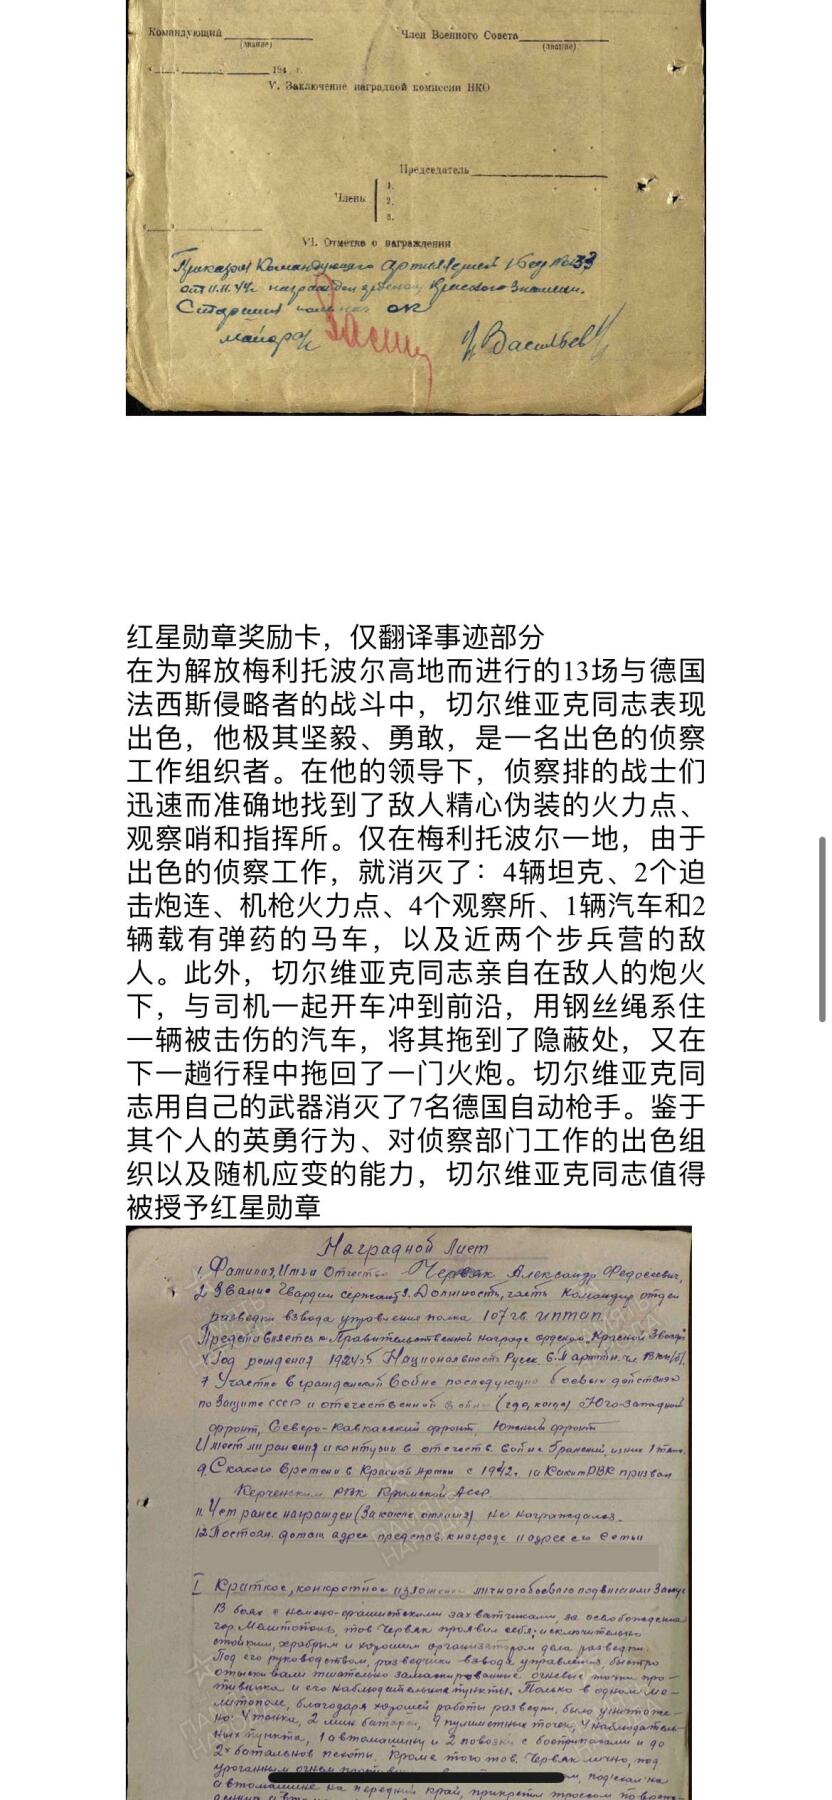 Командующий
Член Военного Совета
(звание)
(звание)
194 г.
V. Заключение наградной комиссии НКО
Председатель
Члены
1.
2.
3.
VI. Отметка о награждении
Приказом Командующего Артиллерией
от 11.11.44г. награжден орденом Красного Знамени.
Старший
майор
Васильев
红星勋章奖励卡，仅翻译事迹部分
在为解放梅利托波尔高地而进行的13场与德国
法西斯侵略者的战斗中，切尔维亚克同志表现
出色，他极其坚毅、勇敢，是一名出色的侦察
工作组织者。在他的领导下，侦察排的战士们
迅速而准确地找到了敌人精心伪装的火力点、
观察哨和指挥所。仅在梅利托波尔一地，由于
出色的侦察工作，就消灭了：4辆坦克、2个迫
击炮连、机枪火力点、4个观察所、1辆汽车和2
辆载有弹药的马车，以及近两个步兵营的敌
人。此外，切尔维亚克同志亲自在敌人的炮火
下，与司机一起开车冲到前沿，用钢丝绳系住
一辆被击伤的汽车，将其拖到了隐蔽处，又在
下一趟行程中拖回了一门火炮。切尔维亚克同
志用自己的武器消灭了7名德国自动枪手。鉴于
其个人的英勇行为、对侦察部门工作的出色组
织以及随机应变的能力，切尔维亚克同志值得
被授予红星勋章
Наградной Лист
1. Фамилия, Имя и Отчество Червяк Александр Федосеевич,
2. Звание Гвардии сержант 3. Должность, часть Командир отдел
разведки взвода управления полка 107 гв. иптап.
Представляется к Правительственной награде орденом "Красной Звезды"
Год рождения 1924 5 Национальность Русск 6. Партийн. чл ВКП/б/.
7 Участие в гражданской войне последующих боевых действиях
по защите СССР и отечественной войне (где, когда) Юго-Западный
фронт, Северо-Кавказский фронт, Южный фронт
Имеет ли ранения и контузии в отечеств. войне
9. С какого времени в Красной Армии с 1942г. 10 Каким РВК призван
Керченским РВК Крымской АССР
11. Чем ранее награжден (За какие отличия) не награждался.
12 Постоян. домаш адрес представ. к награде и адрес его семьи
I Краткое, конкретное изложение личного боевого подвига или заслуг
В боях с немецко-фашистскими захватчиками, за освобождение
гор. Мелитополь, тов Червяк проявил себя; исключительно
стойким, храбрым и хорошим организатором дела разведки.
Под его руководством, разведчики взвода управления быстро
отыскивали тщательно замаскированные огневые точки про-
тивника и его наблюдательные пункты. Только в одном Ме-
литополе, благодаря хорошей работы разведки, было уничтоже-
но: 4 танка, 2 мин батареи, 9 пулеметных точек, 4 наблюдатель-
ных пункта, 1 автомашину и 2 повозки с боеприпасами и до
2х батальонов пехоты. Кроме того тов. Червяк лично, под
ураганным огнем противника подъехал на
автомашине на передний край, прикрепил тросом